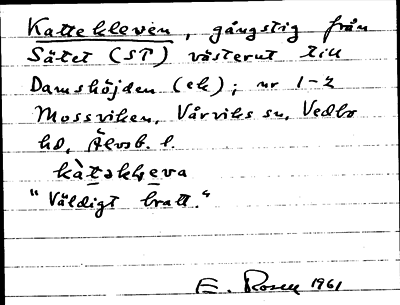 Katteklevèn, gångstig från
Sätet (ST) västerut till
Damshöjden (ek); nr 1-2
Mossviken, Vårviks sn, Vedbo
hd, Älvsb. l.
"Väldigt bratt."
E. Rosell 1961